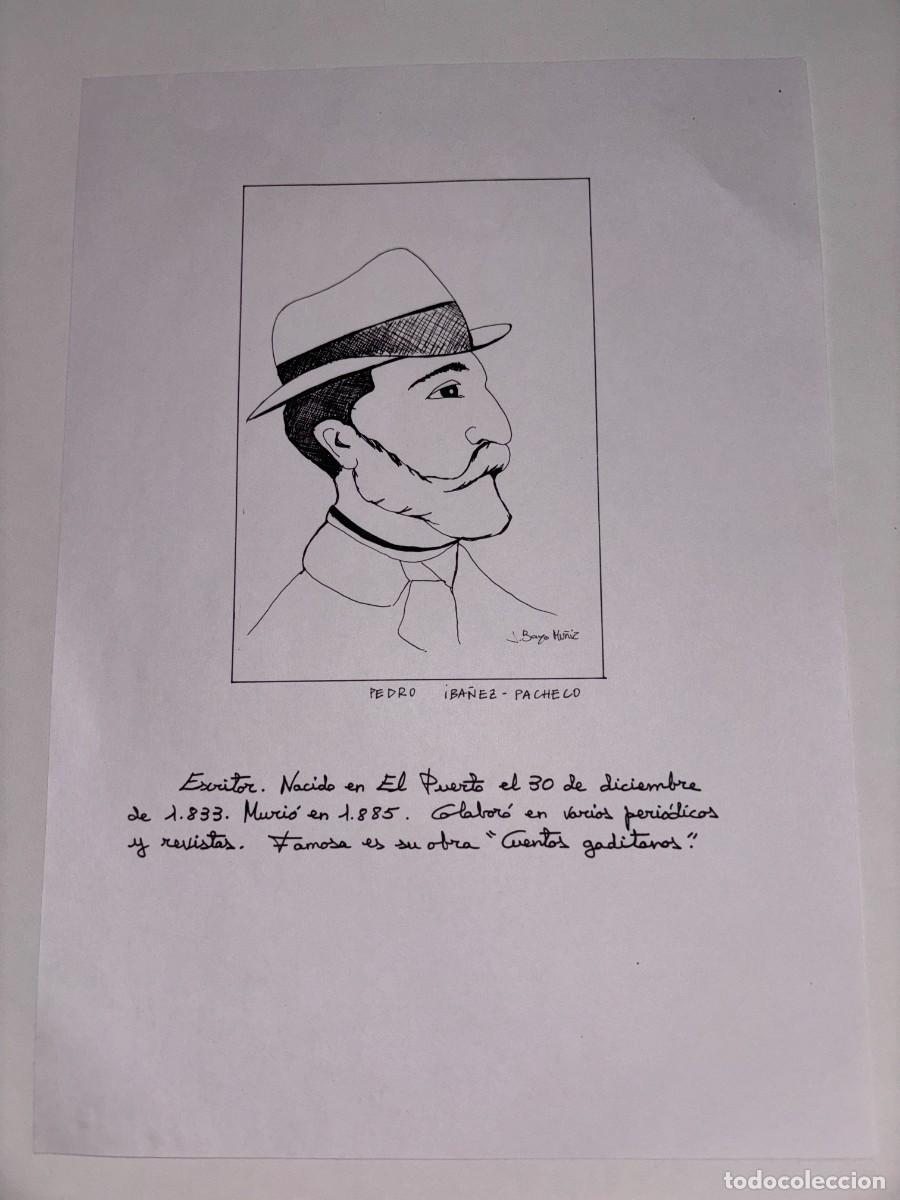 J. Bayo Muñiz
PEDRO IBAÑEZ - PACHECO
Escritor. Nacido en El Puerto el 30 de diciembre
de 1.833. Murió en 1.885. Colaboró en varios periódicos
y revistas. Famosa es su obra "Cuentos gaditanos".
todocoleccion